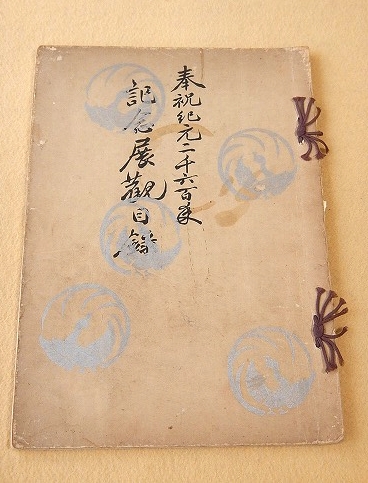 奉祝紀元二千六百年
記念展觀目錄